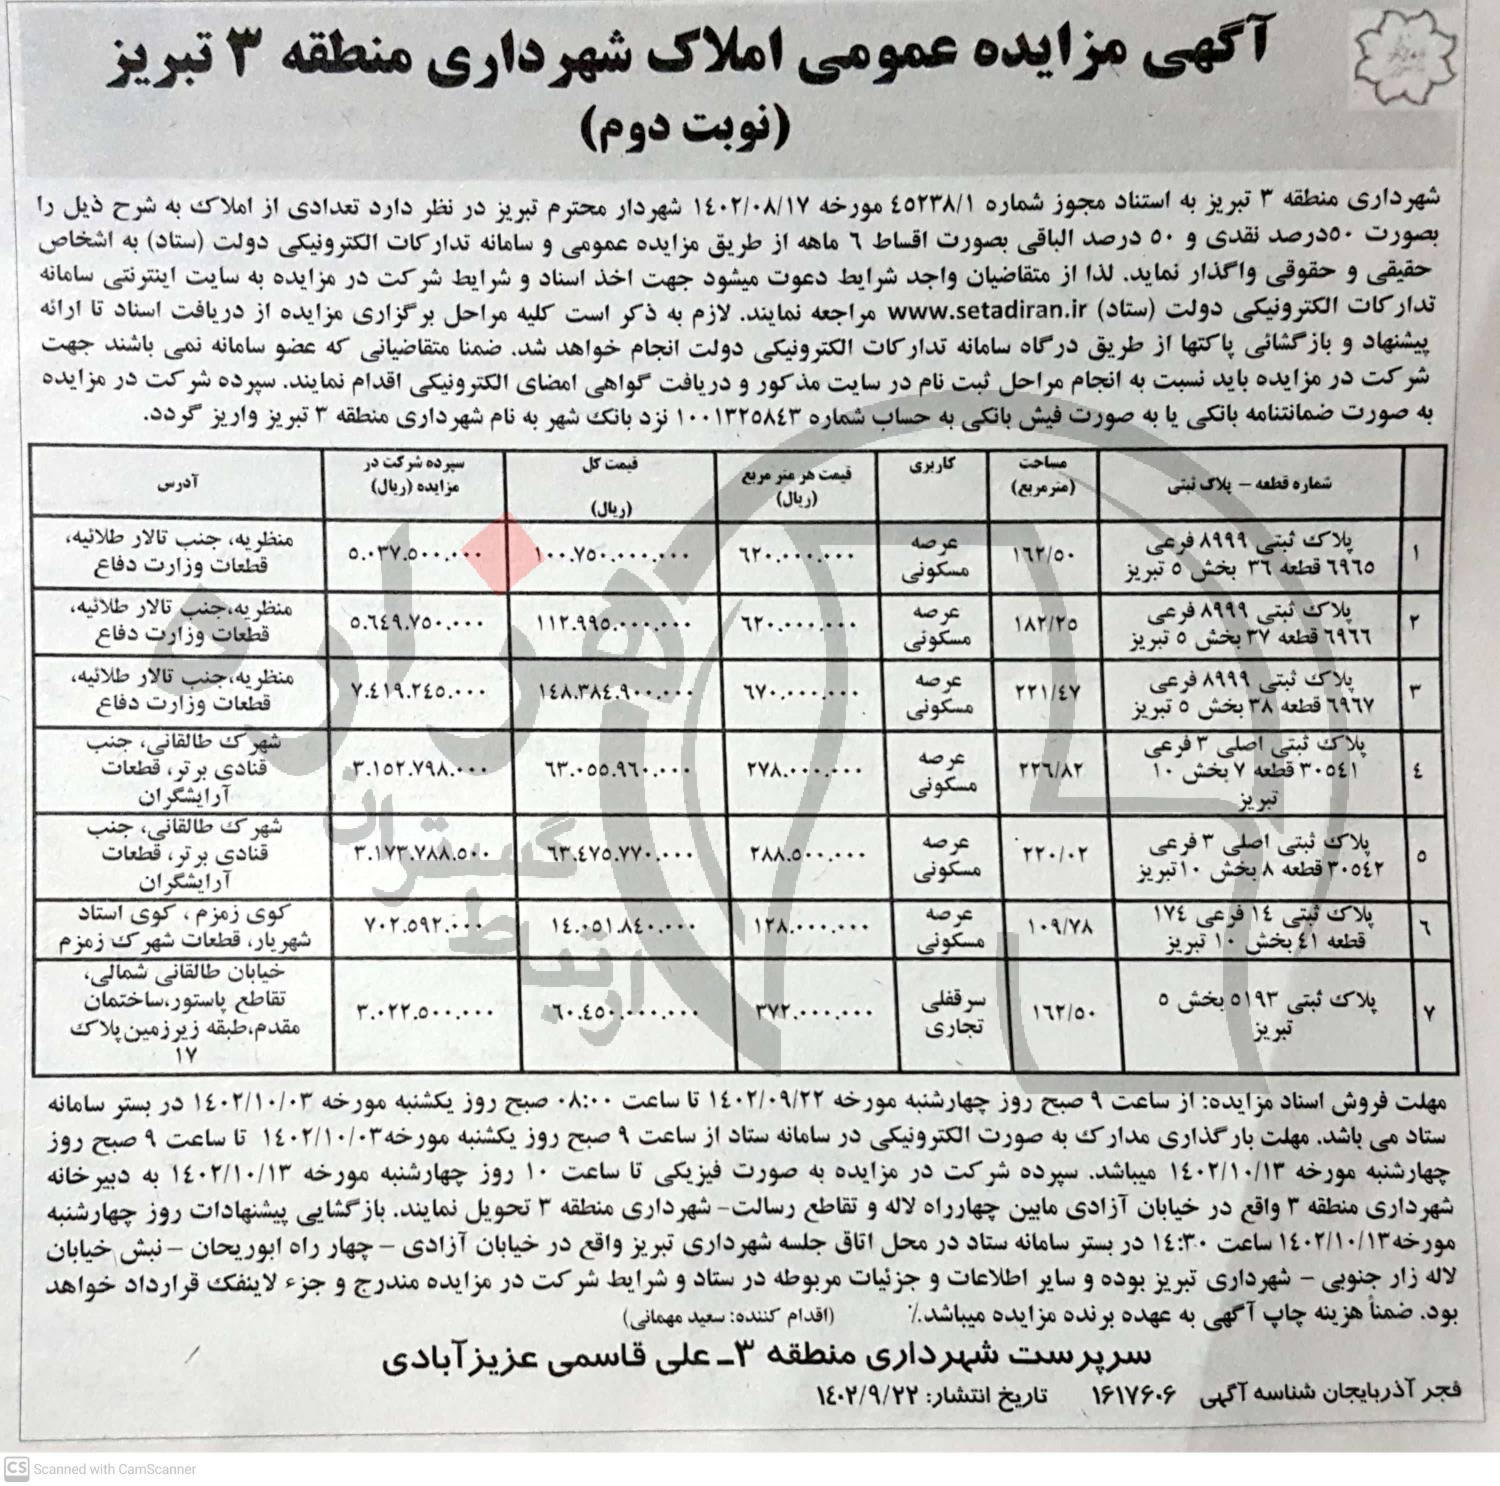 آگهی مزایده عمومی املاک شهرداری منطقه ۳ تبریز
(نوبت دوم)
شهرداری منطقه ۳ تبریز به استناد مجوز شماره ۴۵۲۳۸/۱ مورخه ۱۴۰۲/۰۸/۱۷ شهردار محترم تبریز در نظر دارد تعدادی از املاک به شرح ذیل را
بصورت ۵۰درصد نقدی و ۵۰ درصد الباقی بصورت اقساط ۶ ماهه از طریق مزایده عمومی و سامانه تدارکات الکترونیکی دولت (ستاد) به اشخاص
حقیقی و حقوقی واگذار نماید. لذا از متقاضیان واجد شرایط دعوت میشود جهت اخذ اسناد و شرایط شرکت در مزایده به سایت اینترنتی سامانه
تدارکات الکترونیکی دولت (ستاد) www.setadiran.ir مراجعه نمایند. لازم به ذکر است کلیه مراحل برگزاری مزایده از دریافت اسناد تا ارائه
پیشنهاد و بازگشائی پاکتها از طریق درگاه سامانه تدارکات الکترونیکی دولت انجام خواهد شد. ضمنا متقاضیانی که عضو سامانه نمی باشند جهت
شرکت در مزایده باید نسبت به انجام مراحل ثبت نام در سایت مذکور و دریافت گواهی امضای الکترونیکی اقدام نمایند. سپرده شرکت در مزایده
به صورت ضمانتنامه بانکی یا به صورت فیش بانکی به حساب شماره ۱۰۰۱۳۲۵۸۴۳ نزد بانک شهر به نام شهرداری منطقه ۳ تبریز واریز گردد.
شماره قطعه – پلاک ثبتی مساحت (مترمربع) کاربری قیمت هر متر مربع (ریال) قیمت کل (ریال) سپرده شرکت در مزایده (ریال) آدرس
۱ پلاک ثبتی ۸۹۹۹ فرعی ۶۹۶۵ قطعه ۳۶ بخش ۵ تبریز ۱۶۲/۵۰ عرصه مسکونی ۶۲۰.۰۰۰.۰۰۰ ۱۰۰.۷۵۰.۰۰۰.۰۰۰ ۵.۰۳۷.۵۰۰.۰۰۰ منظریه، جنب تالار طلائیه، قطعات وزارت دفاع
۲ پلاک ثبتی ۸۹۹۹ فرعی ۶۹۶۶ قطعه ۳۷ بخش ۵ تبریز ۱۸۲/۲۵ عرصه مسکونی ۶۲۰.۰۰۰.۰۰۰ ۱۱۲.۹۹۵.۰۰۰.۰۰۰ ۵.۶۴۹.۷۵۰.۰۰۰ منظریه،جنب تالار طلائیه، قطعات وزارت دفاع
۳ پلاک ثبتی ۸۹۹۹ فرعی ۶۹۶۷ قطعه ۳۸ بخش ۵ تبریز ۲۲۱/۴۷ عرصه مسکونی ۶۷۰.۰۰۰.۰۰۰ ۱۴۸.۳۸۴.۹۰۰.۰۰۰ ۷.۴۱۹.۲۴۵.۰۰۰ منظریه، جنب تالار طلائیه، قطعات وزارت دفاع
۴ پلاک ثبتی اصلی ۳ فرعی ۳۰۵۴۱ قطعه ۷ بخش ۱۰ تبریز ۲۲۶/۸۲ عرصه مسکونی ۲۷۸.۰۰۰.۰۰۰ ۶۳.۰۵۵.۹۶۰.۰۰۰ ۳.۱۵۲.۷۹۸.۰۰۰ شهرک طالقانی، جنب قنادی برتر، قطعات آرایشگران
۵ پلاک ثبتی اصلی ۳ فرعی ۳۰۵۴۲ قطعه ۸ بخش ۱۰ تبریز ۲۲۰/۰۲ عرصه مسکونی ۲۸۸.۵۰۰.۰۰۰ ۶۳.۴۷۵.۷۷۰.۰۰۰ ۳.۱۷۳.۷۸۸.۵۰۰ شهرک طالقانی، جنب قنادی برتر، قطعات آرایشگران
۶ پلاک ثبتی ۱۴ فرعی ۱۷۴ قطعه ۴۱ بخش ۱۰ تبریز ۱۰۹/۷۸ عرصه مسکونی ۱۲۸.۰۰۰.۰۰۰ ۱۴.۰۵۱.۸۴۰.۰۰۰ ۷۰۲.۵۹۲.۰۰۰ کوی زمزم ، کوی استاد شهریار، قطعات شهرک زمزم
۷ پلاک ثبتی ۵۱۹۳ بخش ۵ تبریز ۱۶۲/۵۰ سرقفلی تجاری ۳۷۲.۰۰۰.۰۰۰ ۶۰.۴۵۰.۰۰۰.۰۰۰ ۳.۰۲۲.۵۰۰.۰۰۰ خیابان طالقانی شمالی، تقاطع پاستور،ساختمان مقدم،طبقه زیرزمین پلاک ۱۷
مهلت فروش اسناد مزایده: از ساعت ۹ صبح روز چهارشنبه مورخه ۱۴۰۲/۰۹/۲۲ تا ساعت ۰۸:۰۰ صبح روز یکشنبه مورخه ۱۴۰۲/۱۰/۰۳ در بستر سامانه
ستاد می باشد. مهلت بارگذاری مدارک به صورت الکترونیکی در سامانه ستاد از ساعت ۹ صبح روز یکشنبه مورخه۱۴۰۲/۱۰/۰۳ تا ساعت ۹ صبح روز
چهارشنبه مورخه ۱۴۰۲/۱۰/۱۳ میباشد. سپرده شرکت در مزایده به صورت فیزیکی تا ساعت ۱۰ روز چهارشنبه مورخه ۱۴۰۲/۱۰/۱۳ به دبیرخانه
شهرداری منطقه ۳ واقع در خیابان آزادی مابین چهارراه لاله و تقاطع رسالت- شهرداری منطقه ۳ تحویل نمایند. بازگشایی پیشنهادات روز چهارشنبه
مورخه۱۴۰۲/۱۰/۱۳ ساعت ۱۴:۳۰ در بستر سامانه ستاد در محل اتاق جلسه شهرداری تبریز واقع در خیابان آزادی –چهار راه ابوریحان –نبش خیابان
لاله زار جنوبی – شهرداری تبریز بوده و سایر اطلاعات و جزئیات مربوطه در ستاد و شرایط شرکت در مزایده مندرج و جزء لاینفک قرارداد خواهد
بود. ضمناً هزینه چاپ آگهی به عهده برنده مزایده میباشد.٪ (اقدام کننده: سعید مهمانی)
سرپرست شهرداری منطقه ۳ـ علی قاسمی عزیزآبادی
فجر آذربایجان شناسه آگهی ۱۶۱۷۶۰۶ تاریخ انتشار: ۱۴۰۲/۹/۲۲
هزاره
گستران
ارتباط
CS Scanned with CamScanner